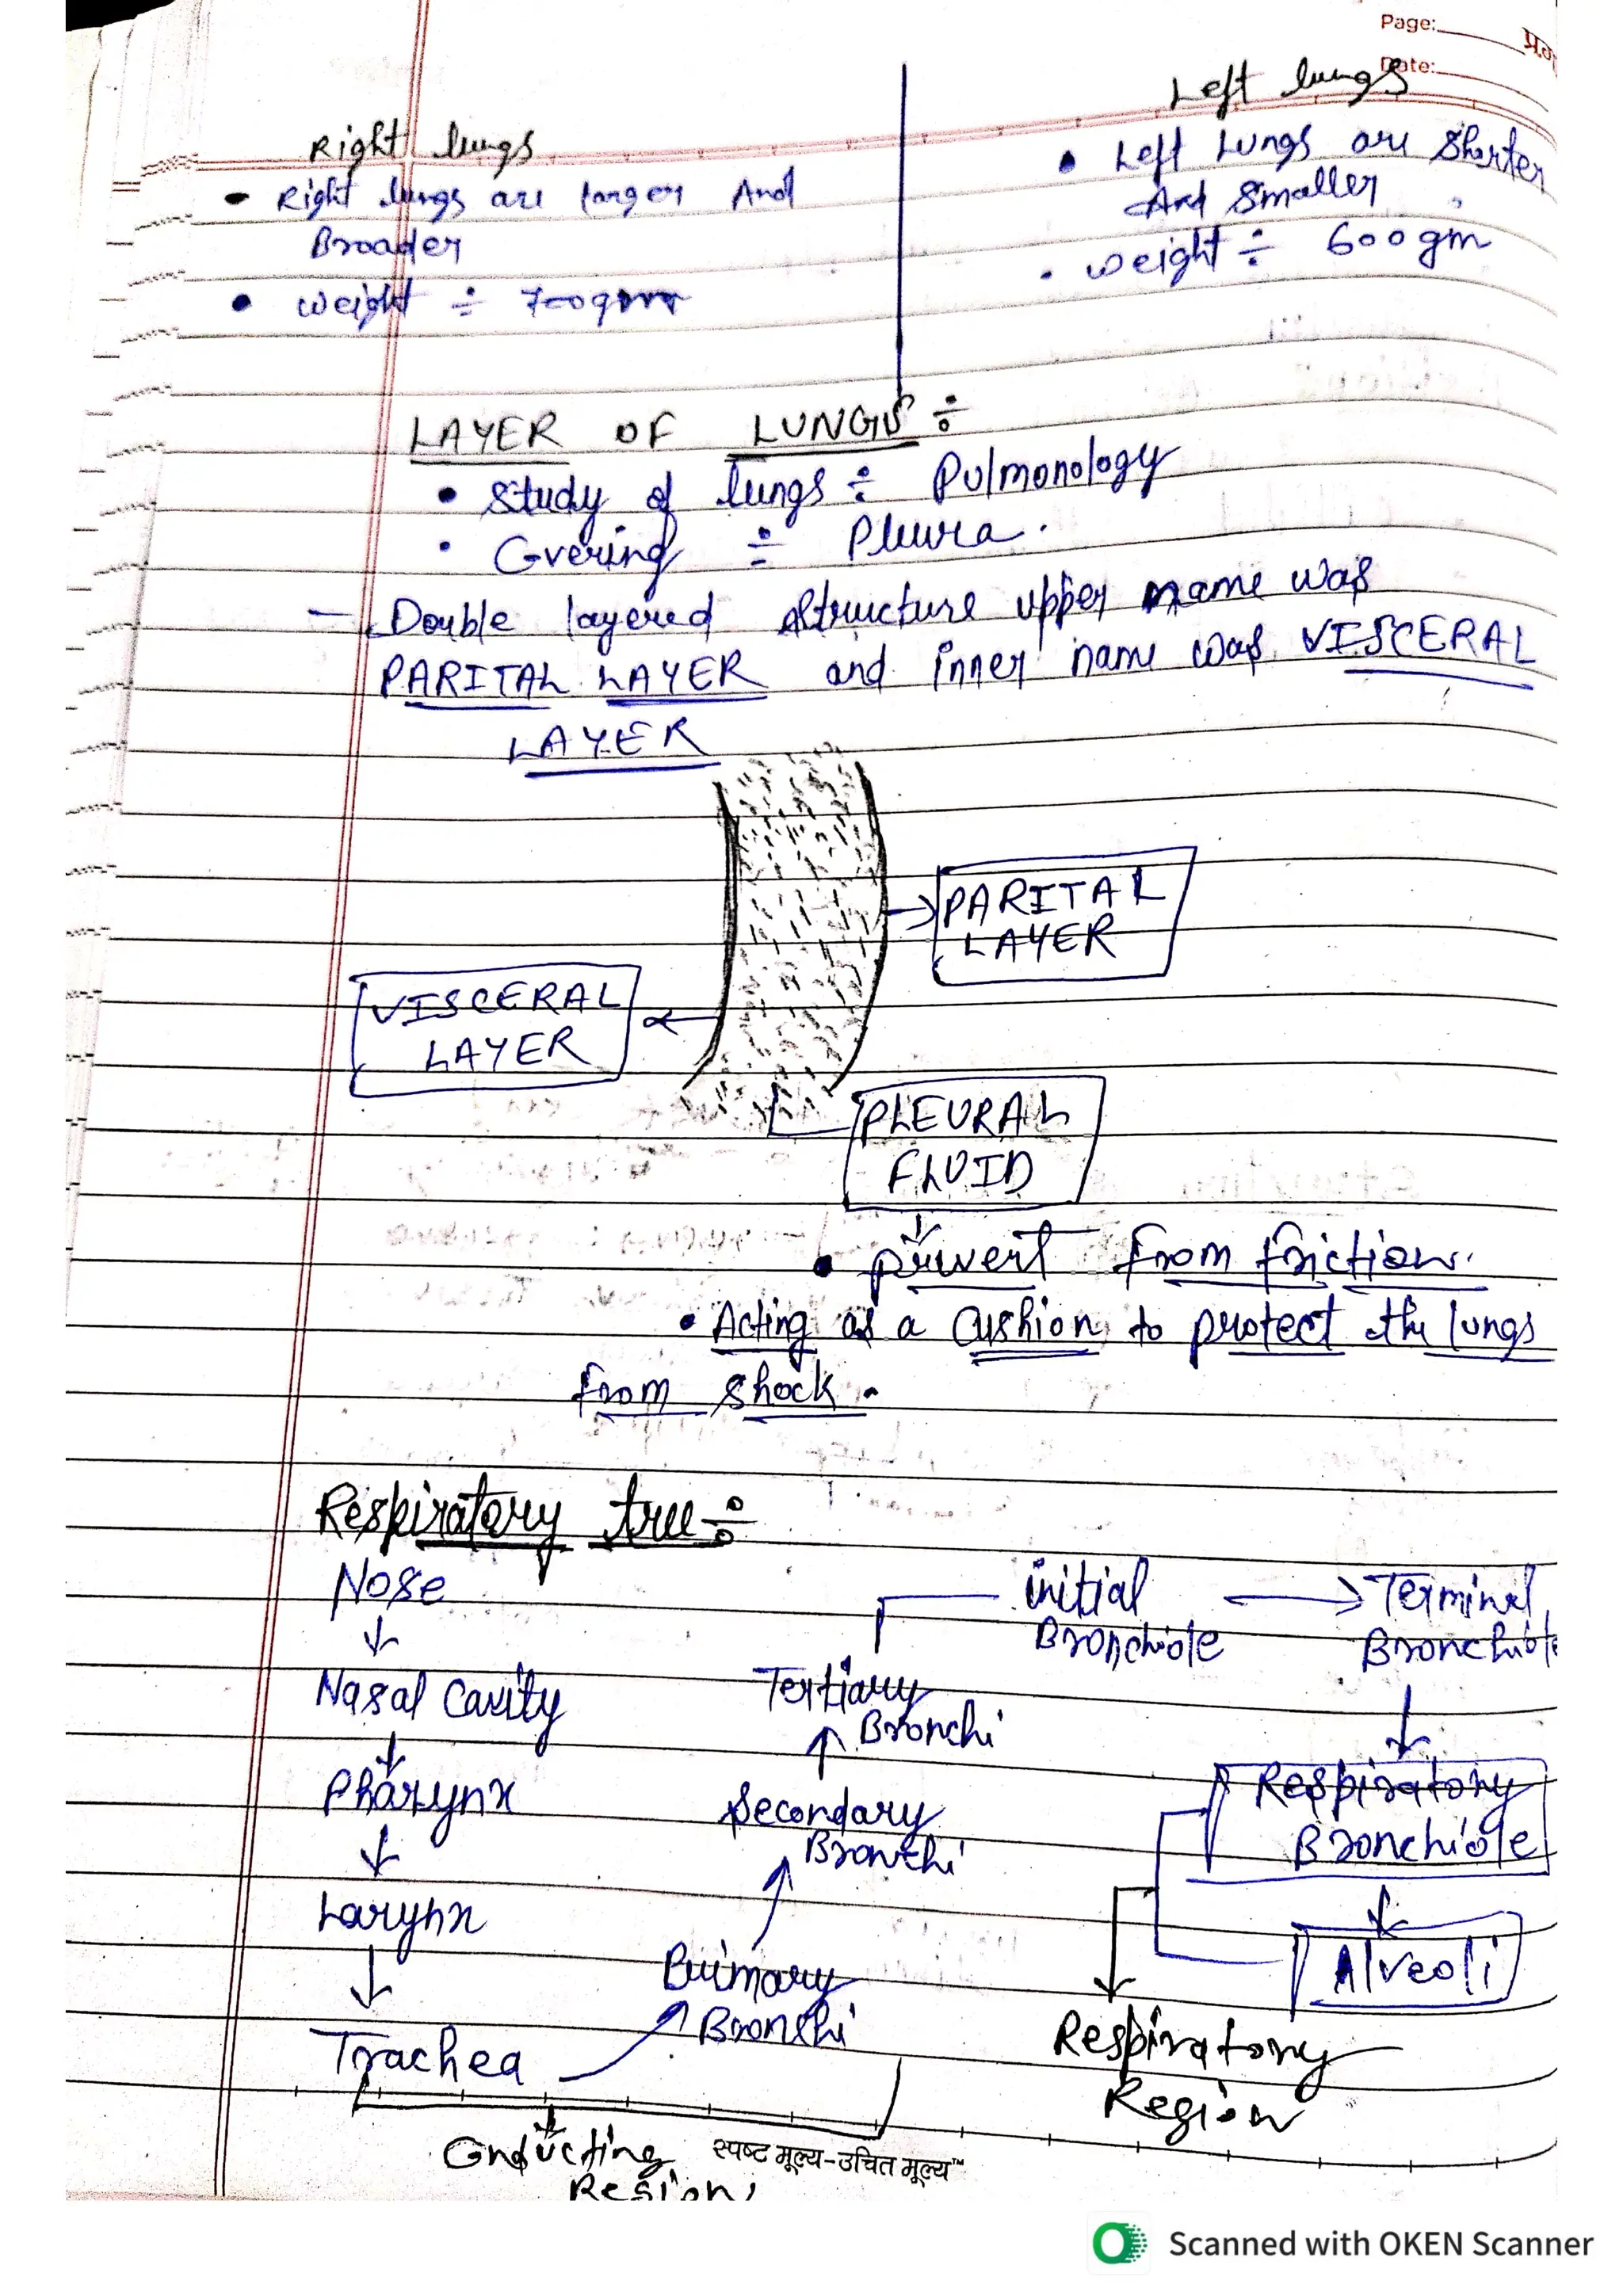 Page:
Date:
Right lungs
• Right lungs are larger And
Broader
• weight ÷ 700gm
Left lungs
• Left Lungs are Shorter
And Smaller
• weight ÷ 600gm
LAYER OF LUNGS ÷
• Study of lungs ÷ Pulmonology
• Covering ÷ Pleura.
– Double layered structure upper name was
PARITAL LAYER and inner name was VISCERAL
LAYER
PARITAL
LAYER
VISCERAL
LAYER
PLEURAL
FLUID
• prevent from friction.
• Acting as a cushion to protect the lungs
from shock.
Respiratory tree ÷
Nose
↓
Nasal Cavity
↓
Pharynx
↓
Larynx
↓
Trachea
Primary
Bronchi
Secondary
Bronchi
Tertiary
Bronchi
initial
Bronchiole
→ Terminal
Bronchiole
↓
Respiratory
Bronchiole
↓
Alveoli
Respiratory
Region
Conducting
Region
स्पष्ट मूल्य-उचित मूल्य™
Scanned with OKEN Scanner